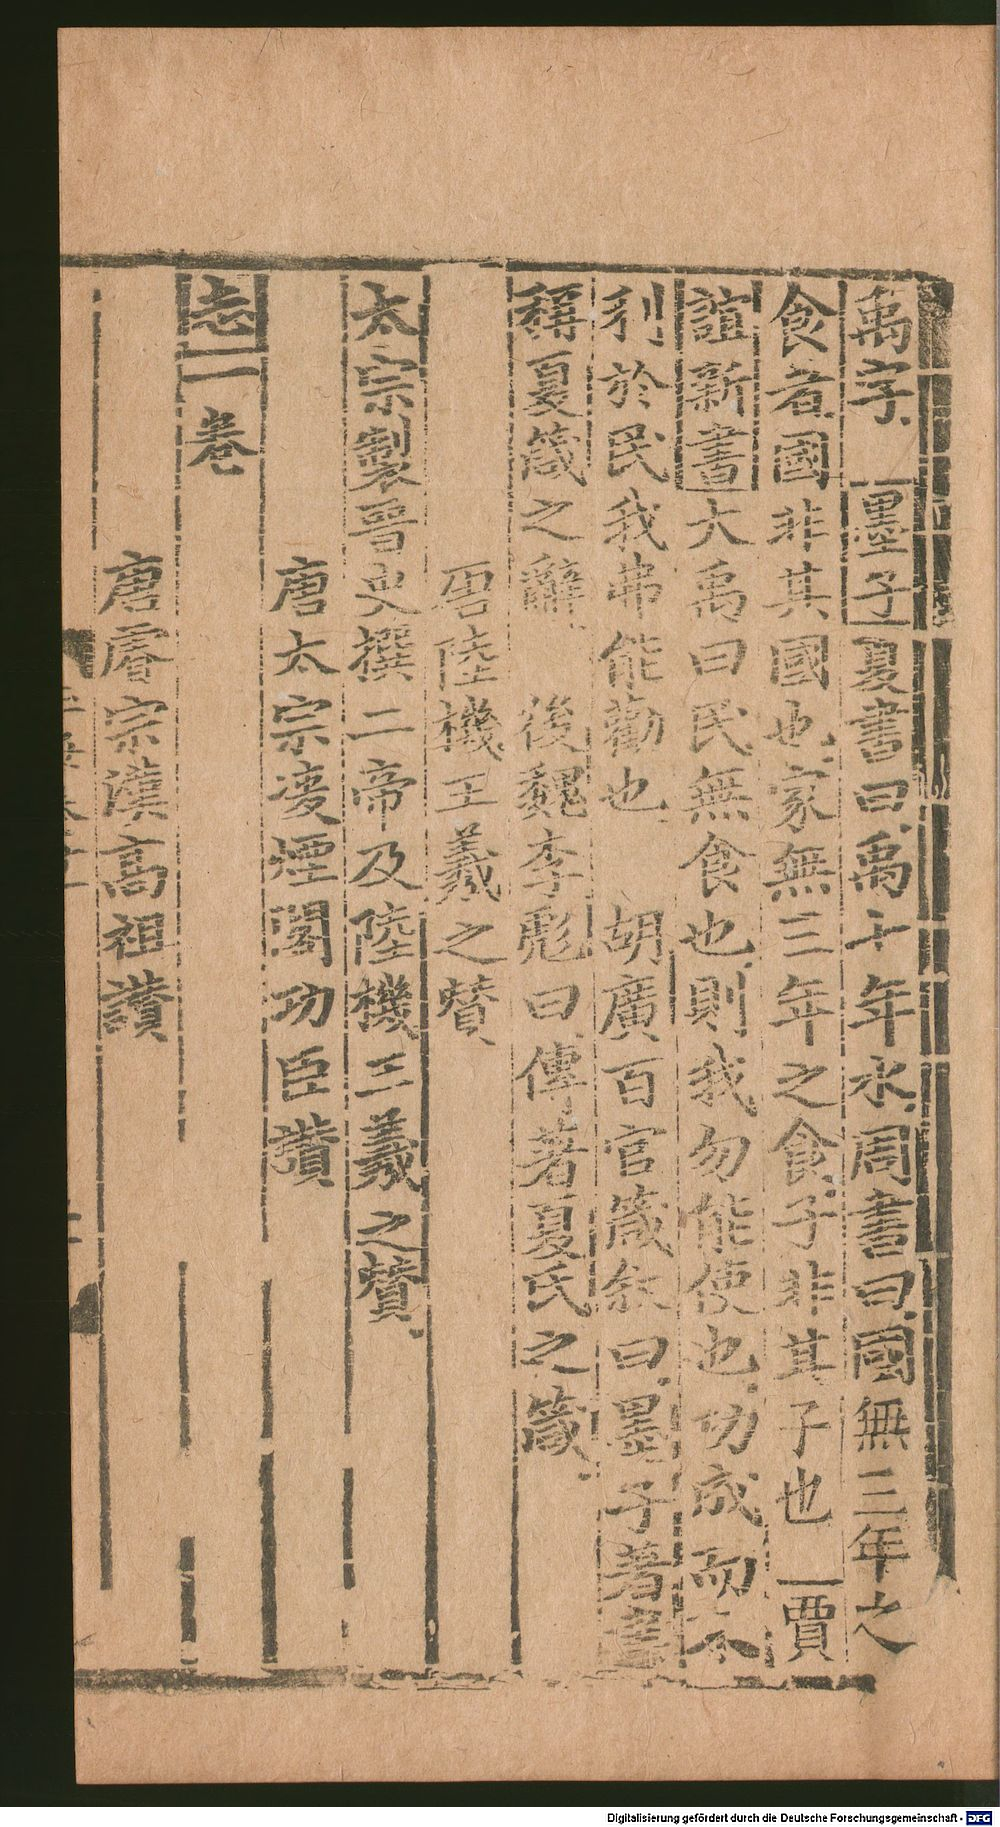 禹字 墨子夏書曰禹十年水周書曰國無三年之
食者國非其國也家無三年之食子非其子也 賈
誼新書大禹曰民無食也則我勿能使也功成而不
利於民我弗能勸也 胡廣百官箴敘曰墨子著書
稱夏箴之辭 後魏李彪曰傳著夏氏之箴
唐陸機王羲之贊
太宗製晉史撰二帝及陸機王羲之贊
唐太宗凌煙閣功臣讚
志一卷
唐睿宗漢高祖讚
Digitalisierung gefördert durch die Deutsche Forschungsgemeinschaft - DFG